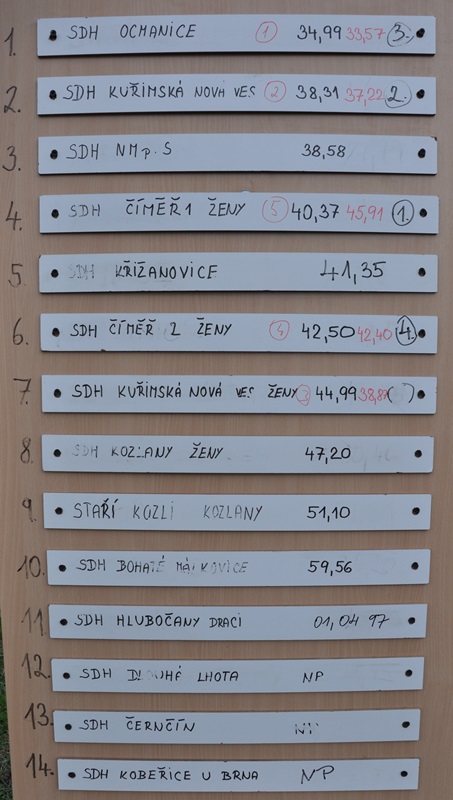 1. SDH OCMANICE 1 34,99 33,57 3.
2. SDH KUŘIMSKÁ NOVÁ VES 2 38,31 37,22 2.
3. SDH NMp.S 38,58
4. SDH ČÍMĚŘ 1 ŽENY 5 40,37 45,91 1.
5. SDH KŘIŽANOVICE 41,35
6. SDH ČÍMĚŘ 2 ŽENY 4 42,50 42,40 4.
7. SDH KUŘIMSKÁ NOVÁ VES ŽENY 3 44,99 38,87 ( )
8. SDH KOZLANY ŽENY 47,20
9. STAŘÍ KOZLI KOZLANY 51,10
10. SDH BOHATÉ MÁLKOVICE 59,56
11. SDH HLUBOČANY DRACI 01,04 97
12. SDH DLOUHÁ LHOTA NP
13. SDH ČERNČÍN NP
14. SDH KOBEŘICE U BRNA NP